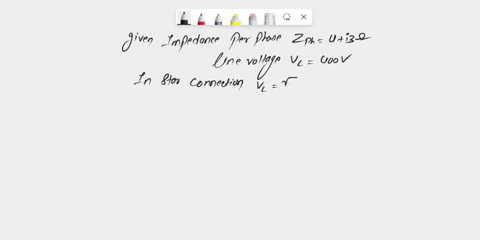 given Impedance Per Phase Zph = 4+i3 Ω
line voltage VL = 400V
In Star connection VL = r